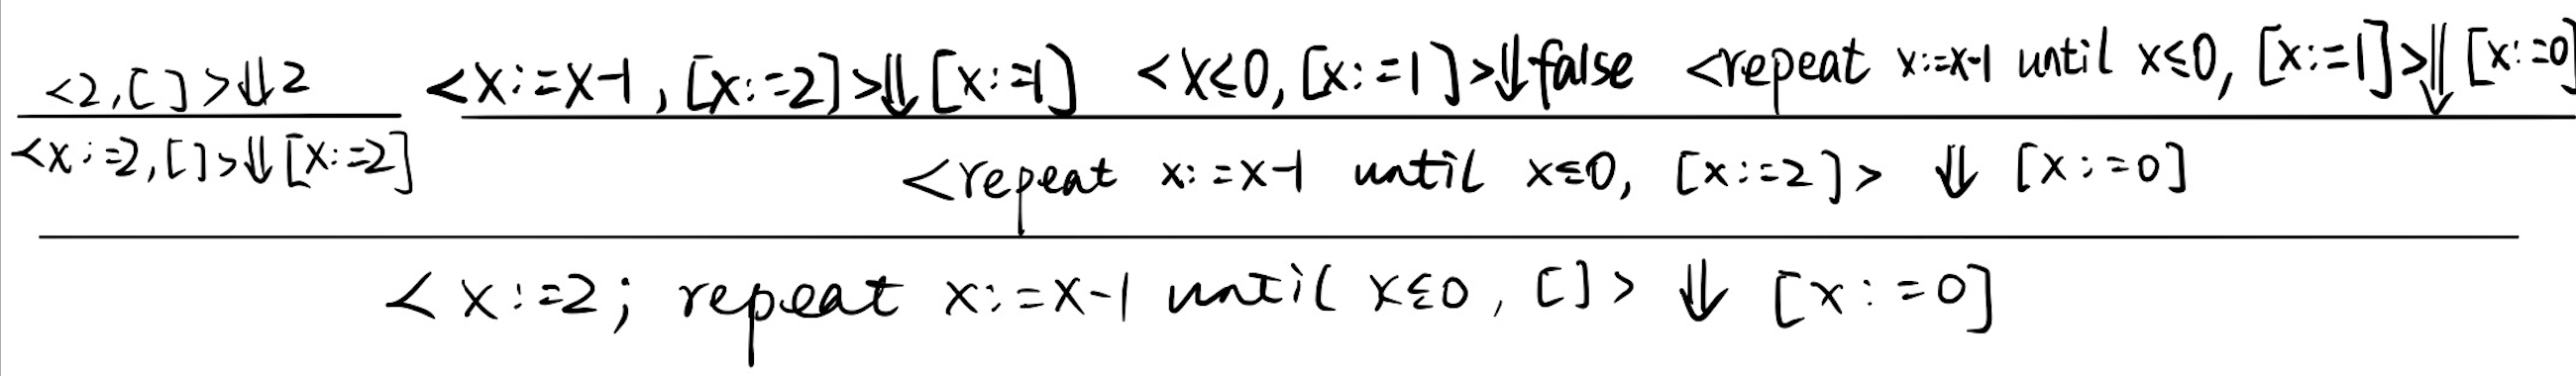 <2,[ ]>⇓2 <x:=x-1,[x:=2]>⇓[x:=1] <x≤0,[x:=1]>⇓false <repeat x:=x-1 until x≤0, [x:=1]>⇓[x:=0]
<x:=2,[]>⇓[x:=2] <repeat x:=x-1 until x≤0, [x:=2]> ⇓ [x:=0]
<x:=2; repeat x:=x-1 until x≤0, []> ⇓ [x:=0]